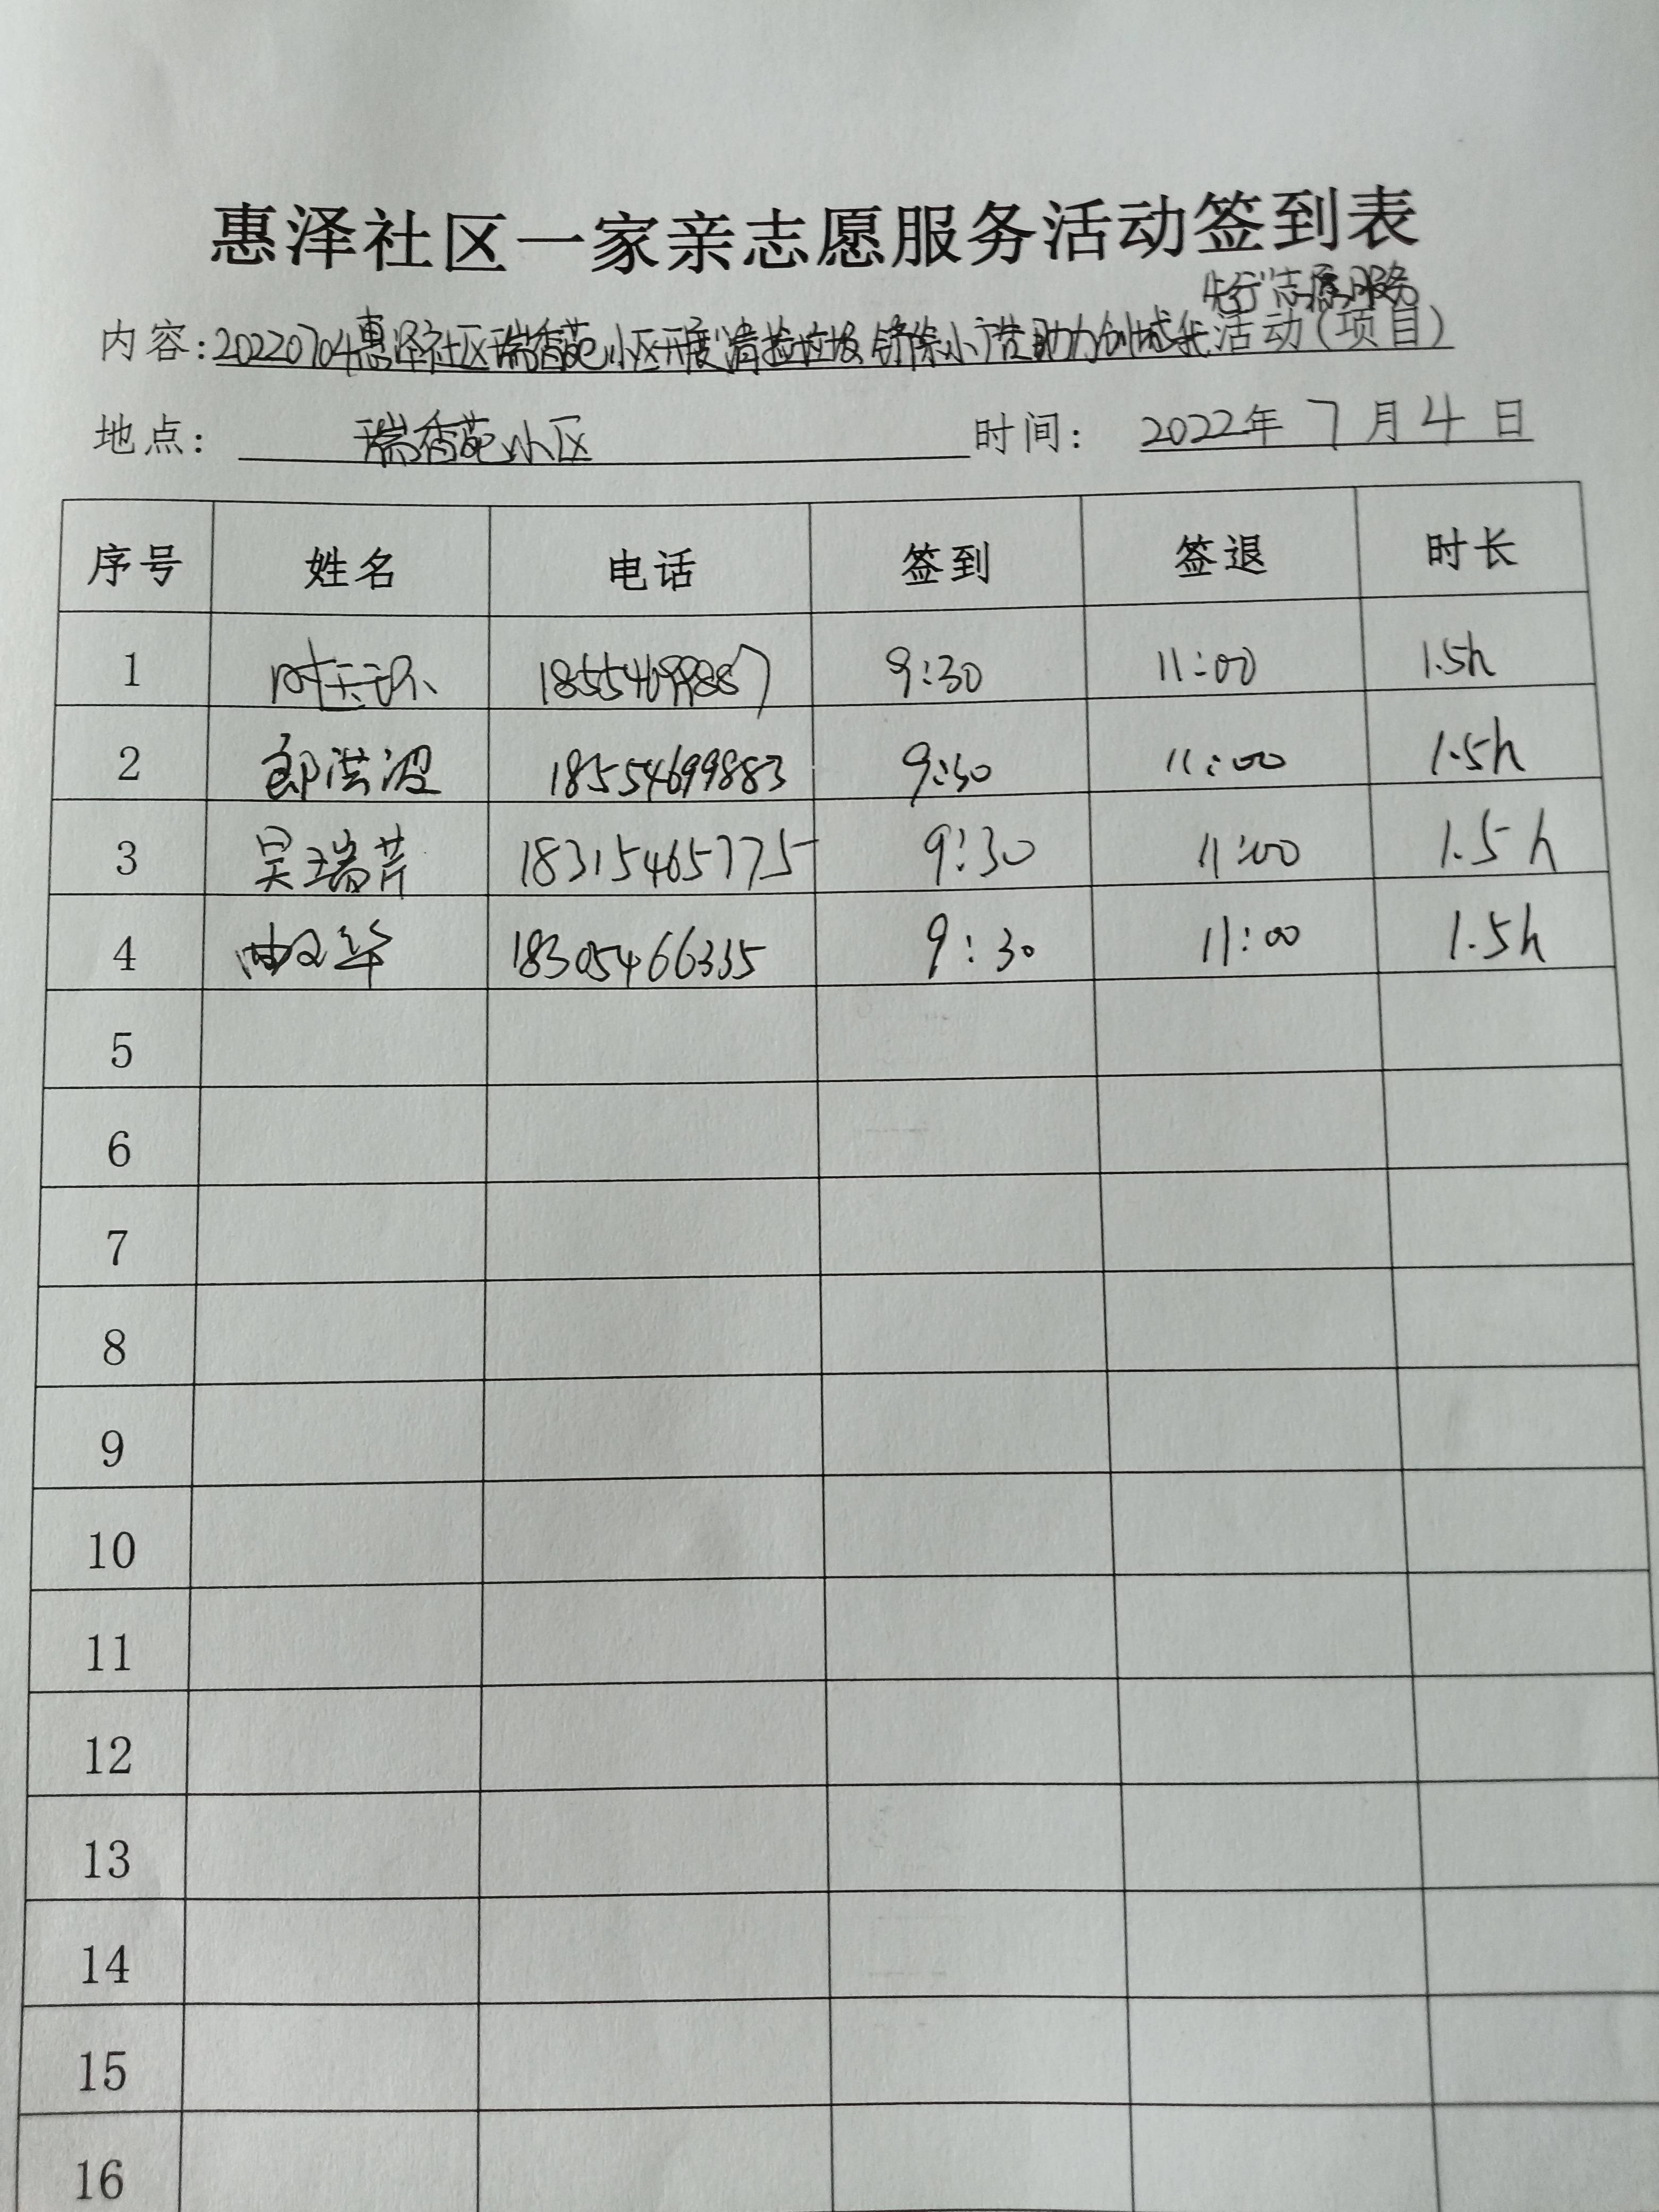 惠泽社区一家亲志愿服务活动签到表
先行"志愿服务
内容:20220704惠泽社区瑞香苑小区开展"清捡垃圾 铲除小广告助力创城我活动(项目)
地点: 瑞香苑小区 时间: 2022年 7 月 4 日
序号 姓名 电话 签到 签退 时长
1 9:30 11:00 1.5h
2 郎洪波 18554699883 9:30 11:00 1.5h
3 吴瑞芹 18315465775 9:30 11:00 1.5h
4 18305466335 9:30 11:00 1.5h
5
6
7
8
9
10
11
12
13
14
15
16